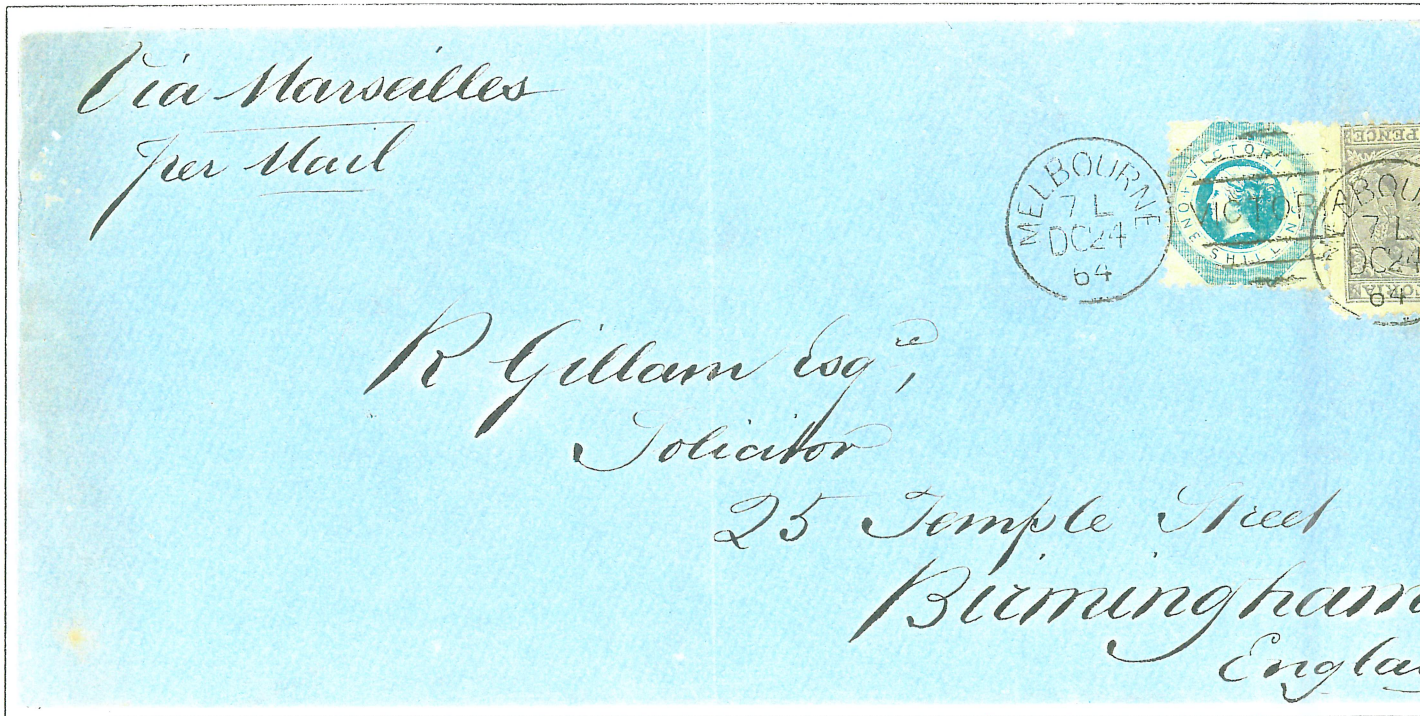 Via Marseilles
per Mail
MELBOURNE
7 L
DC24
64
VICTORIA
ONE SHILLING
VICTOR
PENCE
MELBOU
7 L
DC24
64
ORIA
R Gillam Esqre,
Solicitor
25 Temple Street
Birmingham
Engla